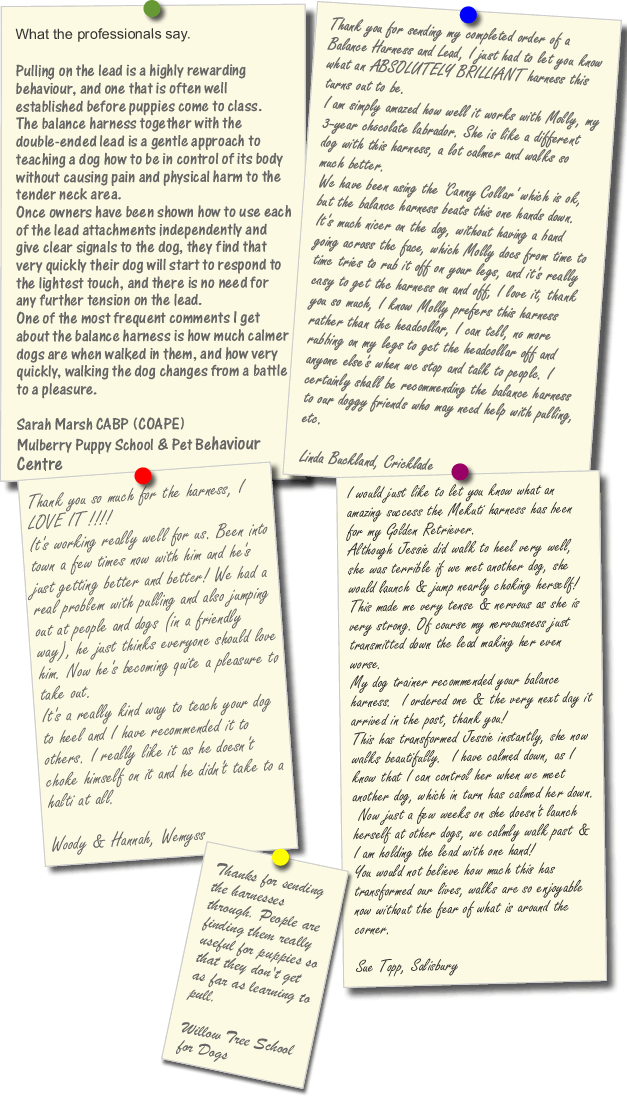 What the professionals say.
Pulling on the lead is a highly rewarding
behaviour, and one that is often well
established before puppies come to class.
The balance harness together with the
double-ended lead is a gentle approach to
teaching a dog how to be in control of its body
without causing pain and physical harm to the
tender neck area.
Once owners have been shown how to use each
of the lead attachments independently and
give clear signals to the dog, they find that
very quickly their dog will start to respond to
the lightest touch, and there is no need for
any further tension on the lead.
One of the most frequent comments I get
about the balance harness is how much calmer
dogs are when walked in them, and how very
quickly, walking the dog changes from a battle
to a pleasure.
Sarah Marsh CABP (COAPE)
Mulberry Puppy School & Pet Behaviour
Centre
Thank you for sending my completed order of a
Balance Harness and Lead, I just had to let you know
what an ABSOLUTELY BRILLIANT harness this
turns out to be.
I am simply amazed how well it works with Molly, my
3-year chocolate labrador. She is like a different
dog with this harness, a lot calmer and walks so
much better.
We have been using the 'Canny Collar' which is ok,
but the balance harness beats this one hands down.
It's much nicer on the dog, without having a band
going across the face, which Molly does from time to
time tries to rub it off on your legs, and it's really
easy to get the harness on and off, I love it, thank
you so much, I know Molly prefers this harness
rather than the headcollar, I can tell, no more
rubbing on my legs to get the headcollar off and
anyone else's when we stop and talk to people. I
certainly shall be recommending the balance harness
to our doggy friends who may need help with pulling,
etc.
Linda Buckland, Cricklade
Thank you so much for the harness, I
LOVE IT !!!!
It's working really well for us. Been into
town a few times now with him and he's
just getting better and better! We had a
real problem with pulling and also jumping
out at people and dogs (in a friendly
way), he just thinks everyone should love
him. Now he's becoming quite a pleasure to
take out.
It's a really kind way to teach your dog
to heel and I have recommended it to
others. I really like it as he doesn't
choke himself on it and he didn't take to a
halti at all.
Woody & Hannah, Wemyss
I would just like to let you know what an
amazing success the Mekuti harness has been
for my Golden Retriever.
Although Jessie did walk to heel very well,
she was terrible if we met another dog, she
would launch & jump nearly choking herself!
This made me very tense & nervous as she is
very strong. Of course my nervousness just
transmitted down the lead making her even
worse.
My dog trainer recommended your balance
harness. I ordered one & the very next day it
arrived in the post, thank you!
This has transformed Jessie instantly, she now
walks beautifully. I have calmed down, as I
know that I can control her when we meet
another dog, which in turn has calmed her down.
Now just a few weeks on she doesn't launch
herself at other dogs, we calmly walk past &
I am holding the lead with one hand!
You would not believe how much this has
transformed our lives, walks are so enjoyable
now without the fear of what is around the
corner.
Sue Topp, Salisbury
Thanks for sending
the harnesses
through. People are
finding them really
useful for puppies so
that they don't get
as far as learning to
pull.
Willow Tree School
for Dogs